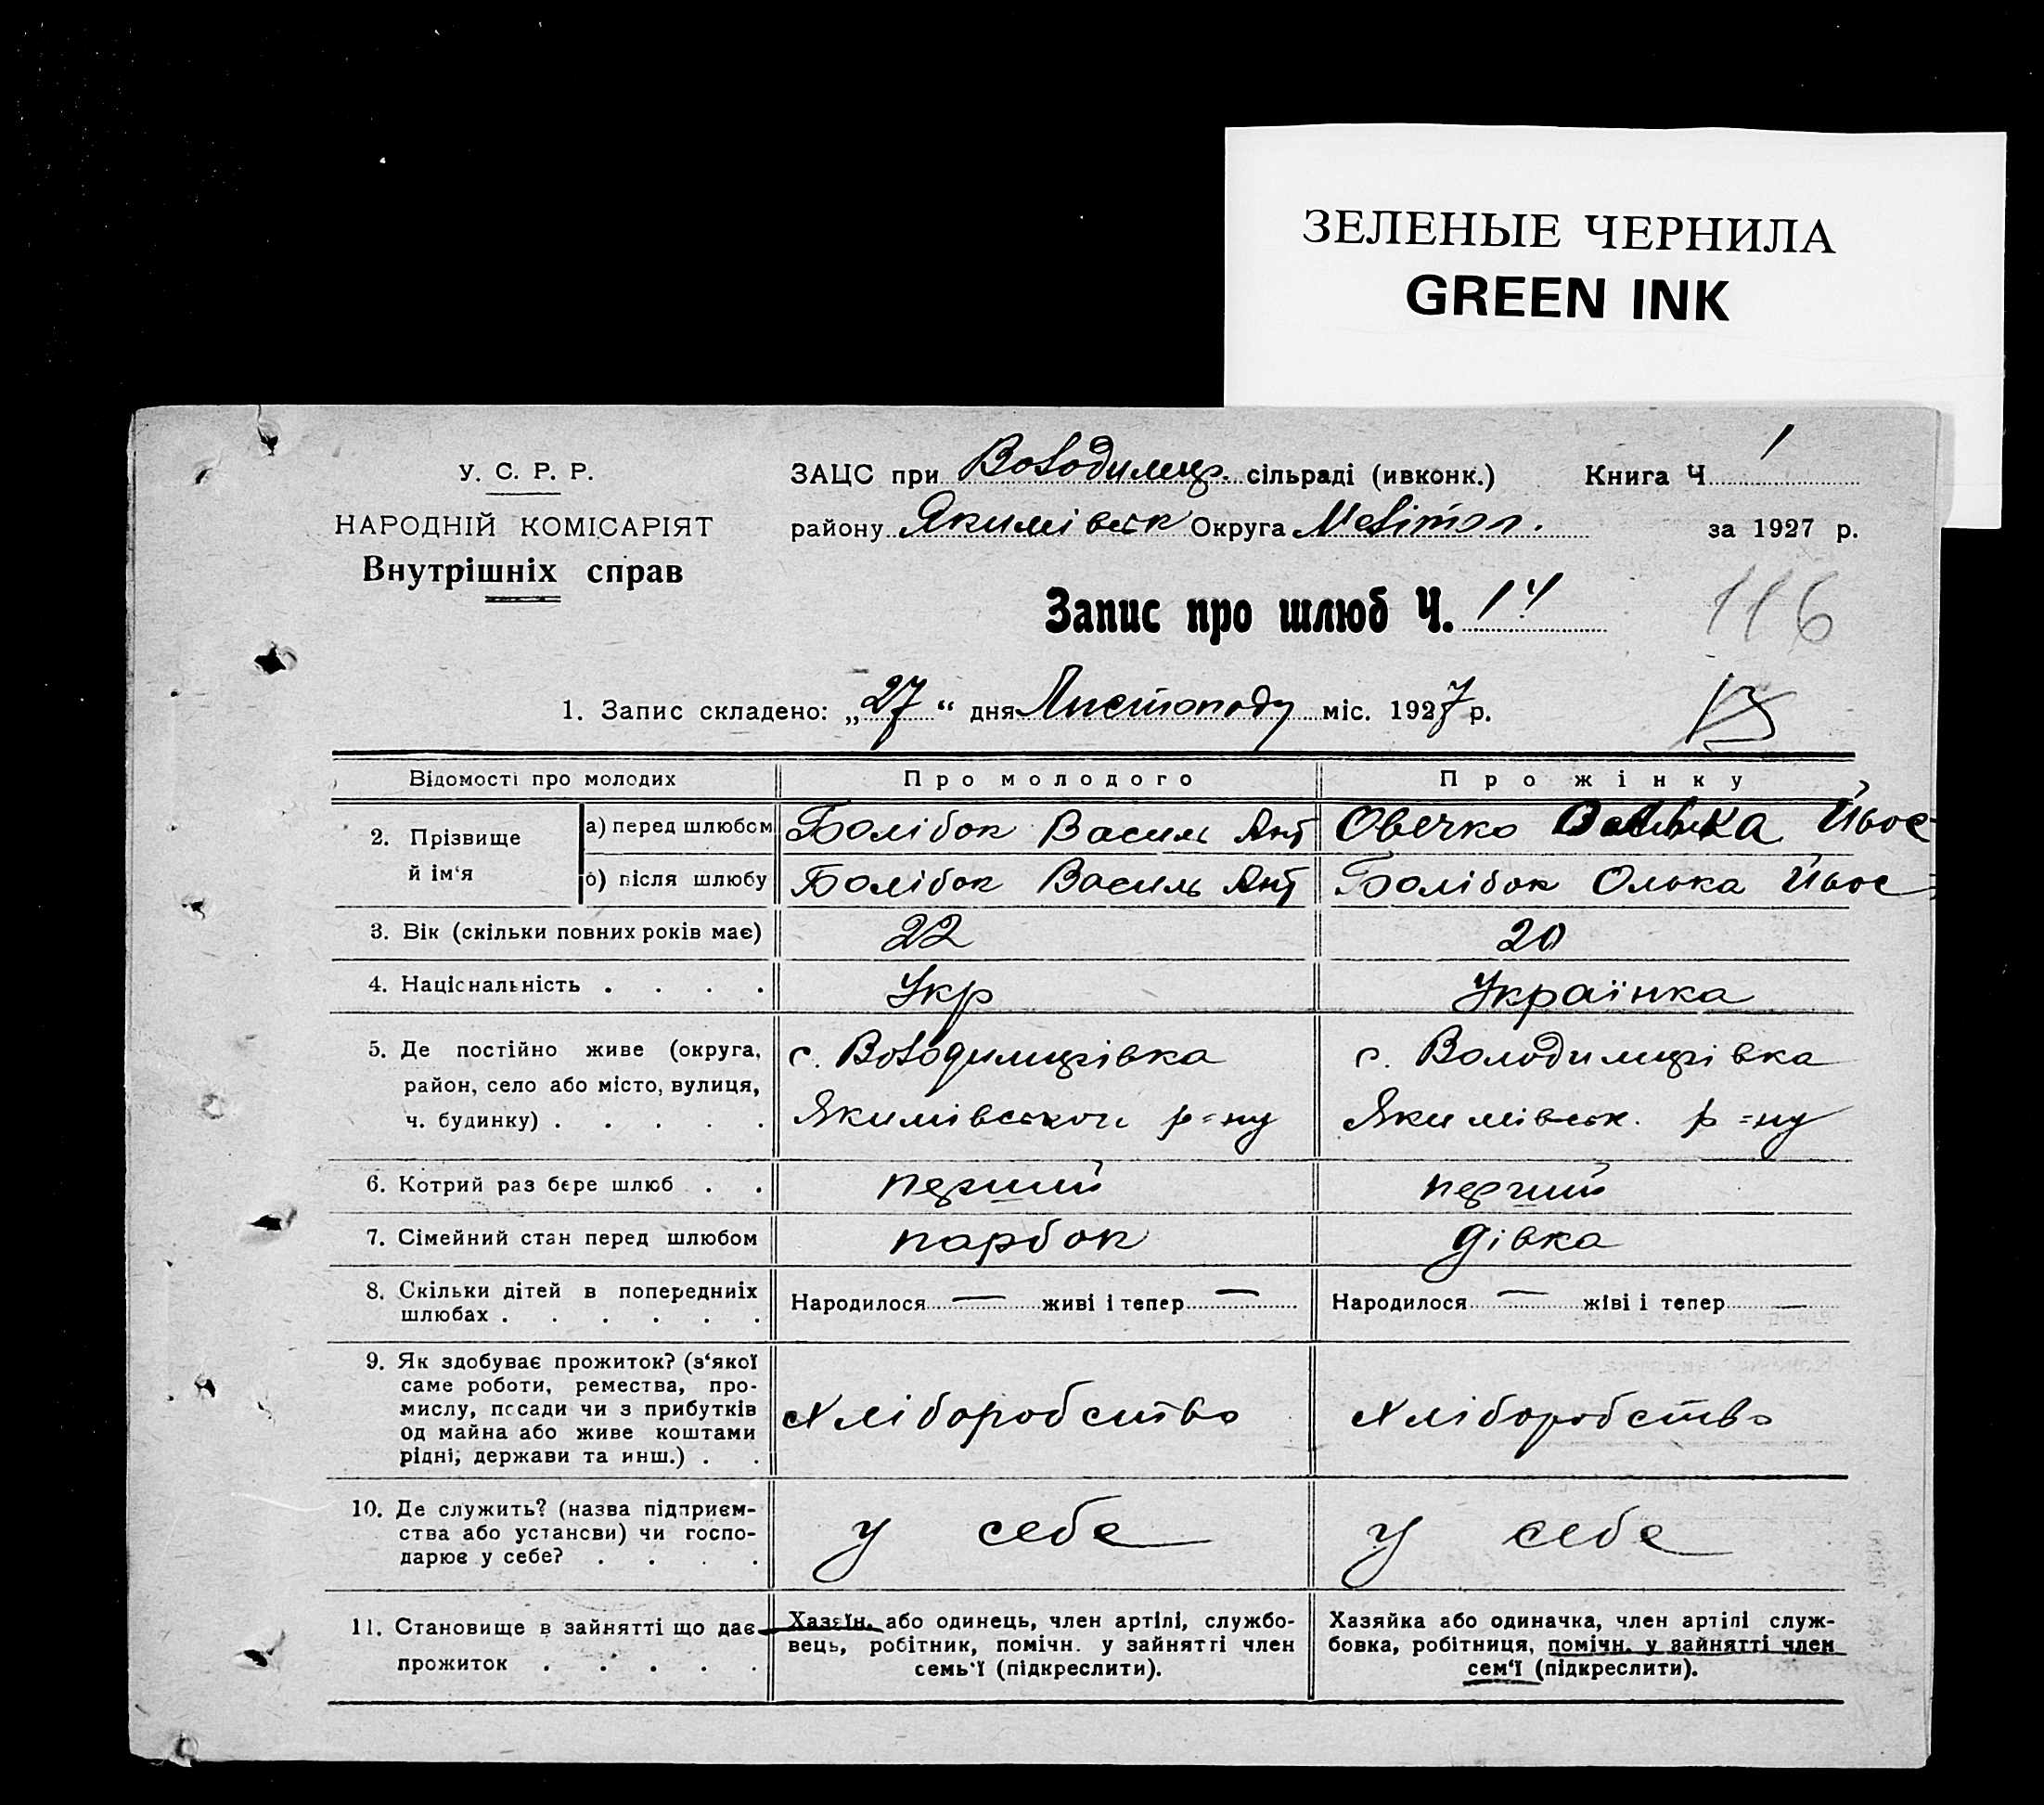 ЗЕЛЕНЫЕ ЧЕРНИЛА
GREEN INK
У. С. Р. Р.
НАРОДНІЙ КОМІСАРІЯТ
Внутрішніх справ
ЗАЦС при Володимир. сільраді (ивконк.) Книга Ч 1
району Якимівськ Округа Мелітоп. за 1927 р.
Запис про шлюб Ч. 14
116
1. Запис складено: „27“ дня Листопаду міс. 1927 р.
Відомості про молодих Про молодого Про жінку
2. Прізвище й ім‘я
а) перед шлюбом Болібок Василь Ант Овечко Олька Йвос
б) після шлюбу Болібок Василь Ант Болібок Олька Йвос
3. Вік (скільки повних років має) 22 20
4. Національність . . . . Укр Українка
5. Де постійно живе (округа, с. Володимирівка с. Володимирівка
район, село або місто, вулиця,
ч. будинку) . . . . . Якимівського р=ну Якимівськ. р=ну
6. Котрий раз бере шлюб . . перший перший
7. Сімейний стан перед шлюбом парбок дівка
8. Скільки дітей в попередниіх
шлюбах . . . . . . Народилося — живі і тепер — Народилося — жіві і тепер —
9. Як здобуває прожиток? (з‘якої
саме роботи, ремества, про-
мислу, посади чи з прибутків Хліборобство Хліборобство
од майна або живе коштами
рідні, держави та инш.) . .
10. Де служить? (назва підприєм-
ства або установи) чи госпо- у себе у себе
дарює у себе? . . . .
11. Становище в зайнятті що дає
прожиток . . . . .
Хазяїн, або одинець, член артілі, службо-
вець, робітник, помічн. у зайнятті член
семь‘ї (підкреслити).
Хазяйка або одиначка, член артілі служ-
бовка, робітниця, помічн. у зайнятті член
сем‘ї (підкреслити).